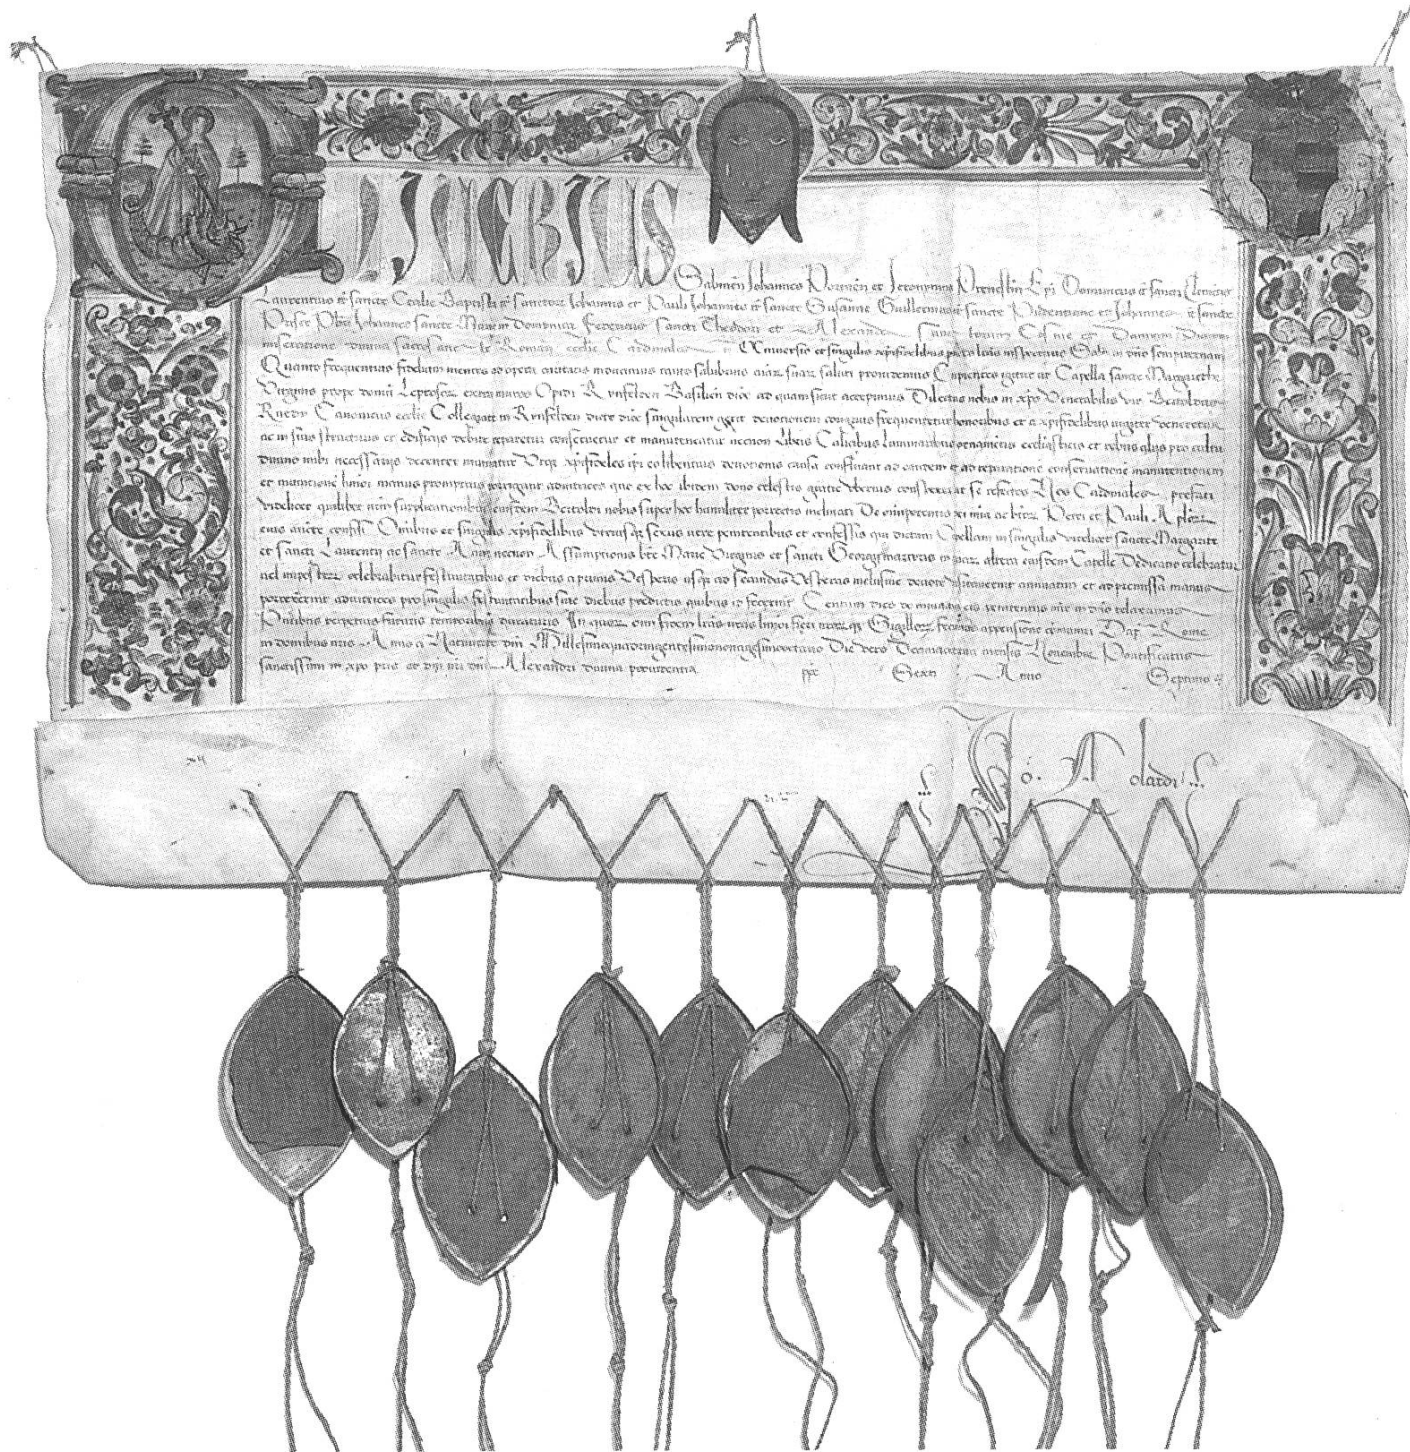 OLIVERIUS
Sabinen Johannes Portuen et Jeronymus Prenestin Epi Dominicus tt sancti Clementis
Laurentius tt sancte Cecilie Baptista tt sanctorum Johannis et Pauli Johannes tt sancte Susanne Guillermus tt sancte Pudentiane et Johannes tt sancte
Prisce Pbri Johannes sancte Marie in Domnica Federicus sancti Theodori et Alexander sanctorum Cosme et Damiani Diaconi
miseratione divina sacrosancte Romane ecclie Cardinales Universis et singulis xpifidelibus ntes lras inspecturis Salm in dno sempiternam
Quanto frequentius fidelium mentes ad opera caritatis inducimus tanto salubrius aiar suar saluti providemus Cupientes igitur ut Capella sancte Margarethe
Virginis prope domum Leprosor extra muros Opidi Rynfelden Basilien dioc ad quam sicut accepimus Dilectus nobis in xpo Venerabilis vir Bertoldus
Canonicus ecclie Collegiate in Rynfelden dicte dioc singularem gerit devotionem congruis frequentetur honoribus et a xpifidelibus iugiter veneretur
ac in suis structuris et edificiis debite reparetur conservetur et manuteneatur necnon Libris Calicibus Luminaribus ornamentis ecclesiasticis et rebus aliis pro cultu
divino inibi necessariis decenter muniatur Utqz xpifideles ipi eo libentius devotionis causa confluant ad eandem et ad reparatione conservatione manutentionem
et munitione hmoi manus promptius porrigant adiutrices quo ex hoc ibidem dono celestis gratie uberius conspexerint se refectos Nos Cardinales prefati
videlicet quilibet nrm supplicationibus eiusdem Bertoldi nobis super hoc humiliter porrectis inclinati De omnipotentis dei mia ac btor Petri et Pauli Aplor
eius aucte confisi Omnibus et singulis xpifidelibus utriusqz sexus vere penitentibus et confessis qui dictam Capellam in singulis videlicet sancte Margarete
et sancti Laurentii ac sancte Anne necnon Assumptionis bte Marie Virginis et sancti Georgii martiris
celebrabitur festivitatibus et diebus a primis Vesperis usqz ad secundas Vesperas inclusive devote visitaverint annuatim et ad premissa manus
porrexerint adiutrices pro singulis festivitatibus sive diebus predictis quibus id fecerint Centum dies de iniunctis eis penitentiis mir in dno relaxamus
Pntibus perpetuis futuris temporibus duraturis In quor omi fidem lras nras hmoi fieri nrorqz Sigillor fecimus appensione cōmuniri Dat Rome
in domibus nris Anno a Nativitate dni Millesimoquadringentesimononagesimooctavo Die vero mensis Novembr Pontificatus
sanctissimi in xpo pris et dni nri dni Alexandri divina providentia ppe Sexti Anno Septimo
Jo. A